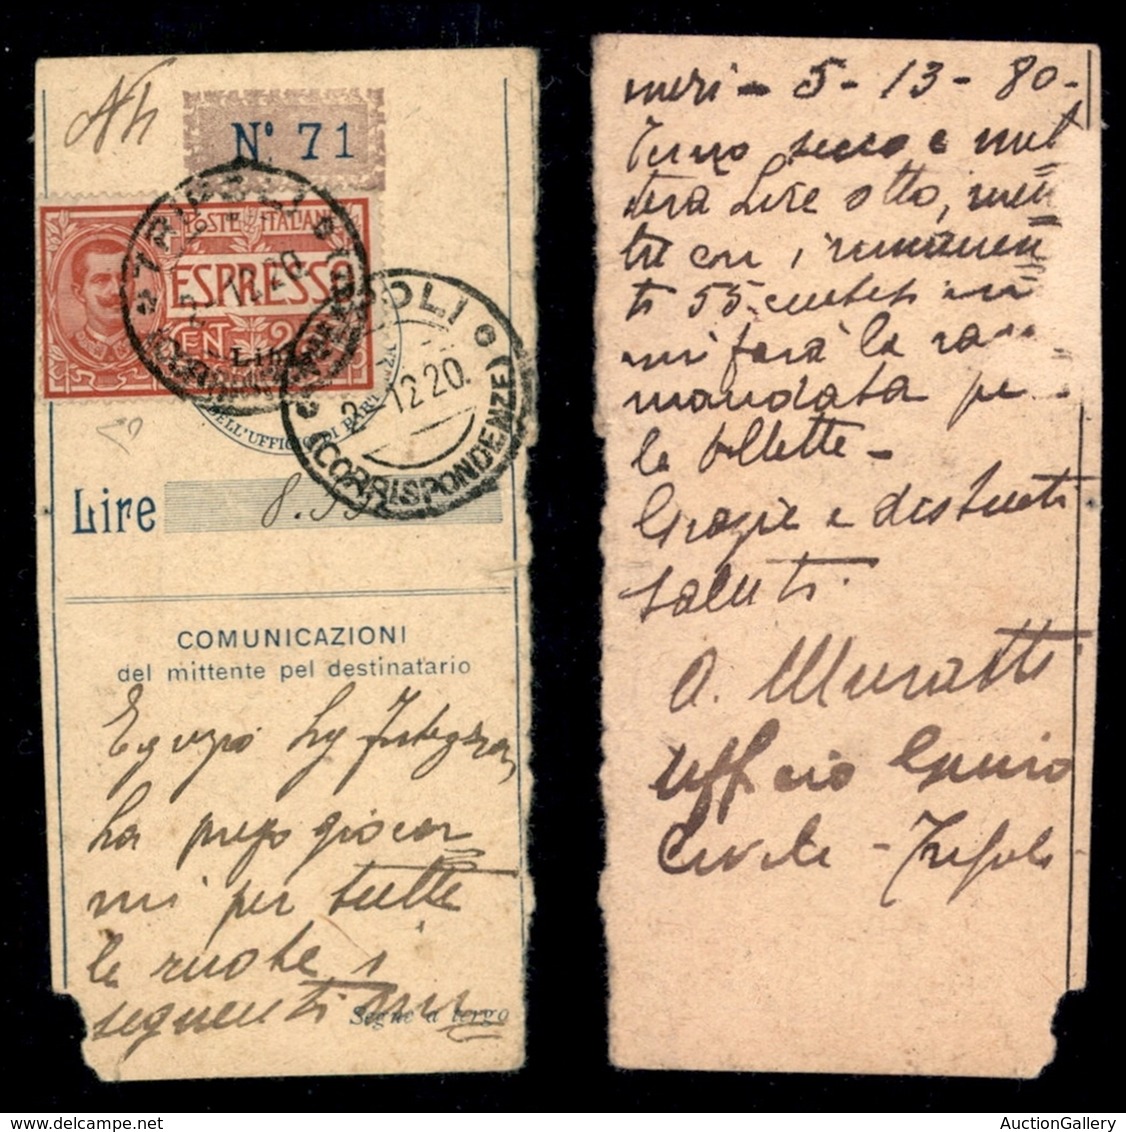 Nº 71
TRIPOLI
POSTE ITALIANE
ESPRESSO
CENT. 25
Libia
TRIPOLI
2-12.20.
(CORRISPONDENZE)
DELL'UFFICIO DI PARTENZA
Lire 8.55
COMUNICAZIONI
del mittente pel destinatario
Egregio Sig
La prego giocar
mi per tutte
le ruote i
seguenti
Segue a tergo
meri - 5 - 13 - 80 -
Terno secco e met
terà Lire otto, men
tre con i rimanen
ti 55 cent
mi farà la rac
mandata pe
le bollette -
Grazie e distinti
saluti.
A. Muratti
Ufficio Genio
Civile - Tripoli
AuctionGallery